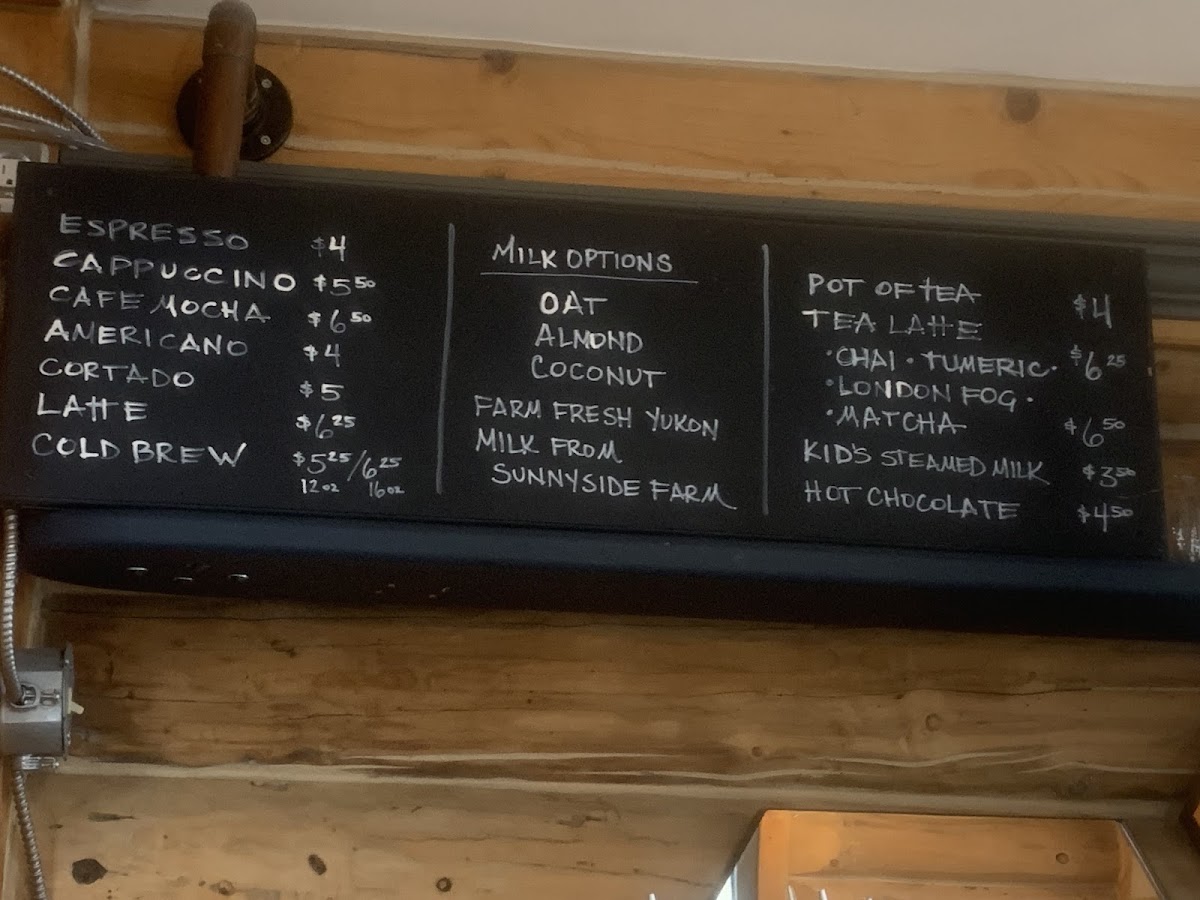 ESPRESSO $4
CAPPUCCINO $5.50
CAFE MOCHA $6.50
AMERICANO $4
CORTADO $5
LATTE $6.25
COLD BREW $5.25/6.25
12oz 16oz
MILK OPTIONS
OAT
ALMOND
COCONUT
FARM FRESH YUKON
MILK FROM
SUNNYSIDE FARM
POT OF TEA $4
TEA LATTE
·CHAI · TUMERIC · $6.25
·LONDON FOG ·
·MATCHA $6.50
KID'S STEAMED MILK $3.50
HOT CHOCOLATE $4.50